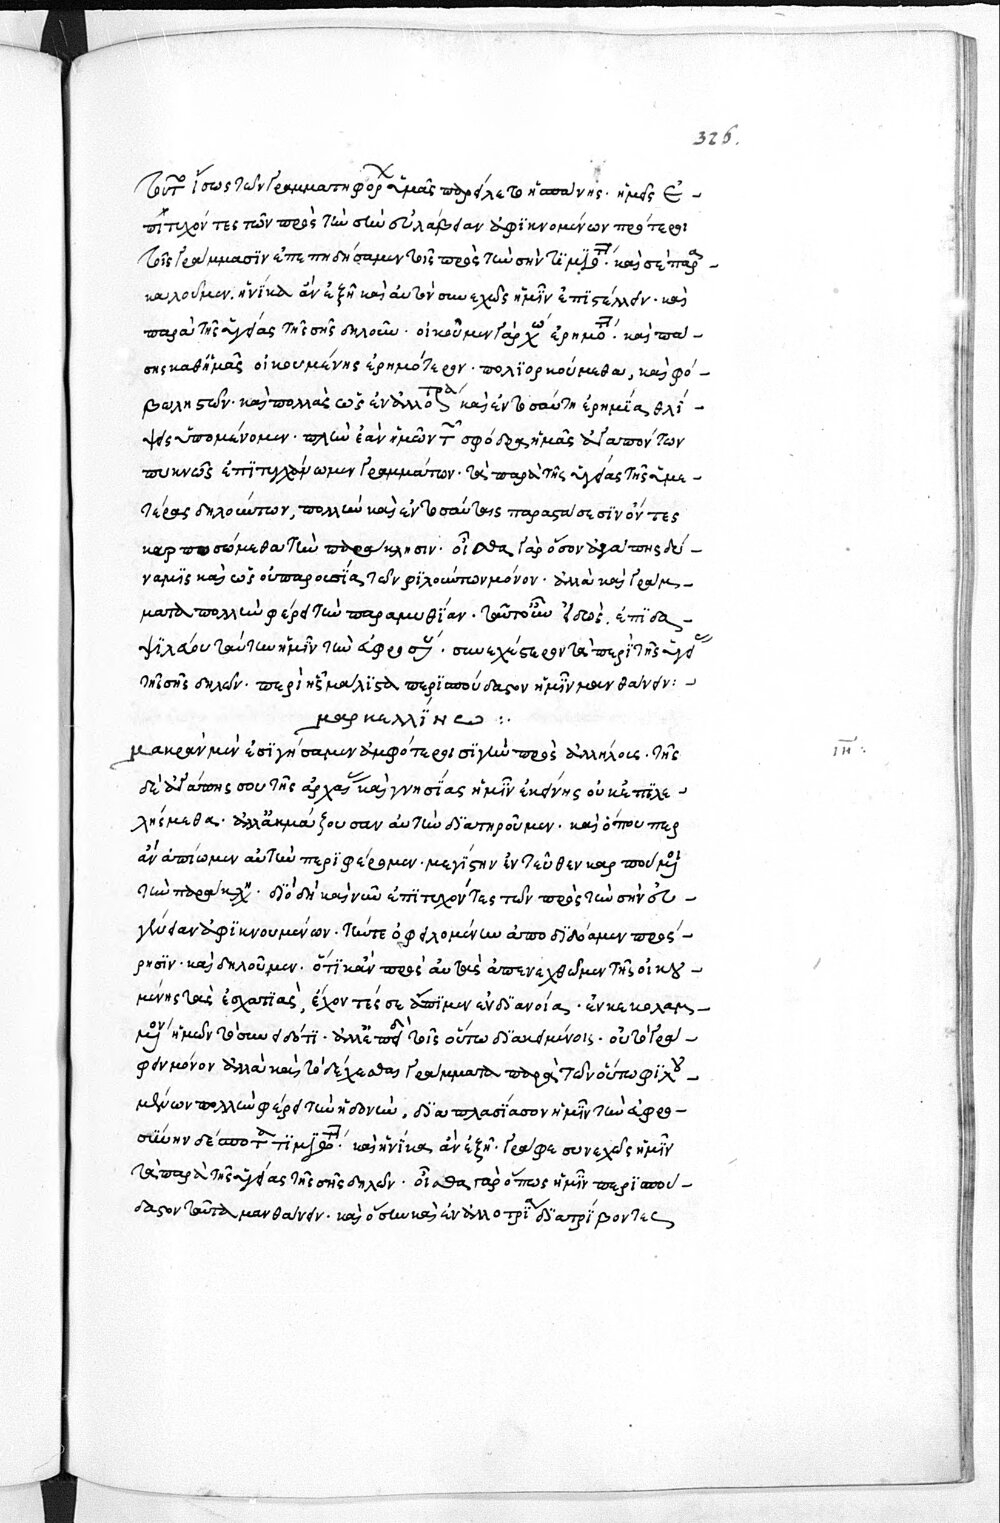 326.
τοῦτο ἴσως τῶν γραμματηφόρων ὑμᾶς παρείλετο ἡ ἀπάνης. ἡμεῖς ἐ-
πιτυχόντες τῶν πρὸς τὴν σὴν εὐλάβειαν ἀφικνομένων πρότεροι
τοῖς γράμμασιν ἐπεπηδήσαμεν τοῖς πρὸς τὴν σὴν τιμιότητα. καὶ σὲ παρα-
καλοῦμεν. ἡνίκα ἂν ἐξῇ καὶ αὐτὸν συνεχῶς ἡμῖν ἐπιστέλλειν. καὶ
παρὰ τῆς ὑγείας τῆς σῆς δηλοῦν. οἰκοῦμεν γὰρ χωρίον ἐρημότατον. καὶ πά-
σης καθ' ἡμᾶς οἰκουμένης ἐρημότερον. πολιορκούμεθα, καὶ φό-
βῳ λῃστῶν. καὶ πολλὰς ὡς ἐν ἀλλοτρίᾳ καὶ ἐν τοσαύτῃ ἐρημίᾳ θλί-
ψεις ὑπομένομεν. πλὴν ἐὰν ἡμῶν τῶν σφόδρα ἡμᾶς ἀγαπόντων
πυκνῶς ἐπιτυγχάνωμεν γραμμάτων. τὰ παρὰ τῆς ὑγείας τῆς ὑμε-
τέρας δηλούντων, πολλὴν καὶ ἐν τοσαύταις παραστάσεσιν ὄντες
καρπωσόμεθα τὴν παράκλησιν. οἶσθα γὰρ ὅσον ἀγάπης δύ-
ναμις καὶ ὡς οὐ παρουσία τῶν φιλούντων μόνον. ἀλλὰ καὶ γράμ-
ματα πολλὴν φέρει τὴν παραμυθίαν. τοῦτο οὖν εἰδὼς. ἐπιδα-
ψιλεύου ταύτην ἡμῖν τὴν εὐφροσύνην. συνεχέστερον τὰ περὶ τῆς ὑγείας
τῆς σῆς δηλῶν. περὶ ἧς μάλιστα περισπούδαστον ἡμῖν μανθάνειν:
μαρκελλίνῳ :.
μακρὰν μὲν ἐσιγήσαμεν ἀμφότεροι σιγὴν πρὸς ἀλλήλους. τῆς
ιη:
δὲ ἀγάπης σου τῆς ἀρχαίας καὶ γνησίας ἡμῖν ἐκείνης οὐκ ἐπιλε-
λήσμεθα. ἀλλ' ἀκμάζουσαν αὐτὴν διατηροῦμεν. καὶ ὅπου περ
ἂν ἀπίωμεν αὐτὴν περιφέρομεν. μεγίστην ἐντεῦθεν καρπούμενοι
τὴν παράκλησιν. διὸ δὴ καὶ νῦν ἐπιτυχόντες τῶν πρὸς τὴν σὴν εὐ-
γένειαν ἀφικνουμένων. τήν τε ὀφειλομένην ἀποδίδομεν πρόσ-
ρησιν. καὶ δηλοῦμεν. ὅτι κἂν πρὸς αὐτὰς ἀπενεχθῶμεν τῆς οἰκου-
μένης τὰς ἐσχατιὰς, ἔχοντές σε ἄπιμεν ἐν διανοίᾳ. ἐνκεκολαμ-
μένον ἡμῶν τὸ συνειδότι. ἀλλ' ἐπειδὴ τοῖς οὕτω διακειμένοις. οὐ τὸ γρά-
φειν μόνον ἀλλὰ καὶ τὸ δέχεσθαι γράμματα παρὰ τῶν οὕτω φιλου-
μένων πολλὴν φέρει τὴν ἡδονὴν, διαπλασίασον ἡμῖν τὴν εὐφρο-
σύνην δέσποτα τιμιώτατε. καὶ ἡνίκα ἂν ἐξῇ. γράφε συνεχῶς ἡμῖν
τὰ παρὰ τῆς ὑγείας τῆς σῆς δηλῶν. οἶσθα γὰρ ὅπως ἡμῖν περισπού-
δαστον ταῦτα μανθάνειν. καὶ ὅσην καὶ ἐν ἀλλοτρίᾳ διατρίβοντες